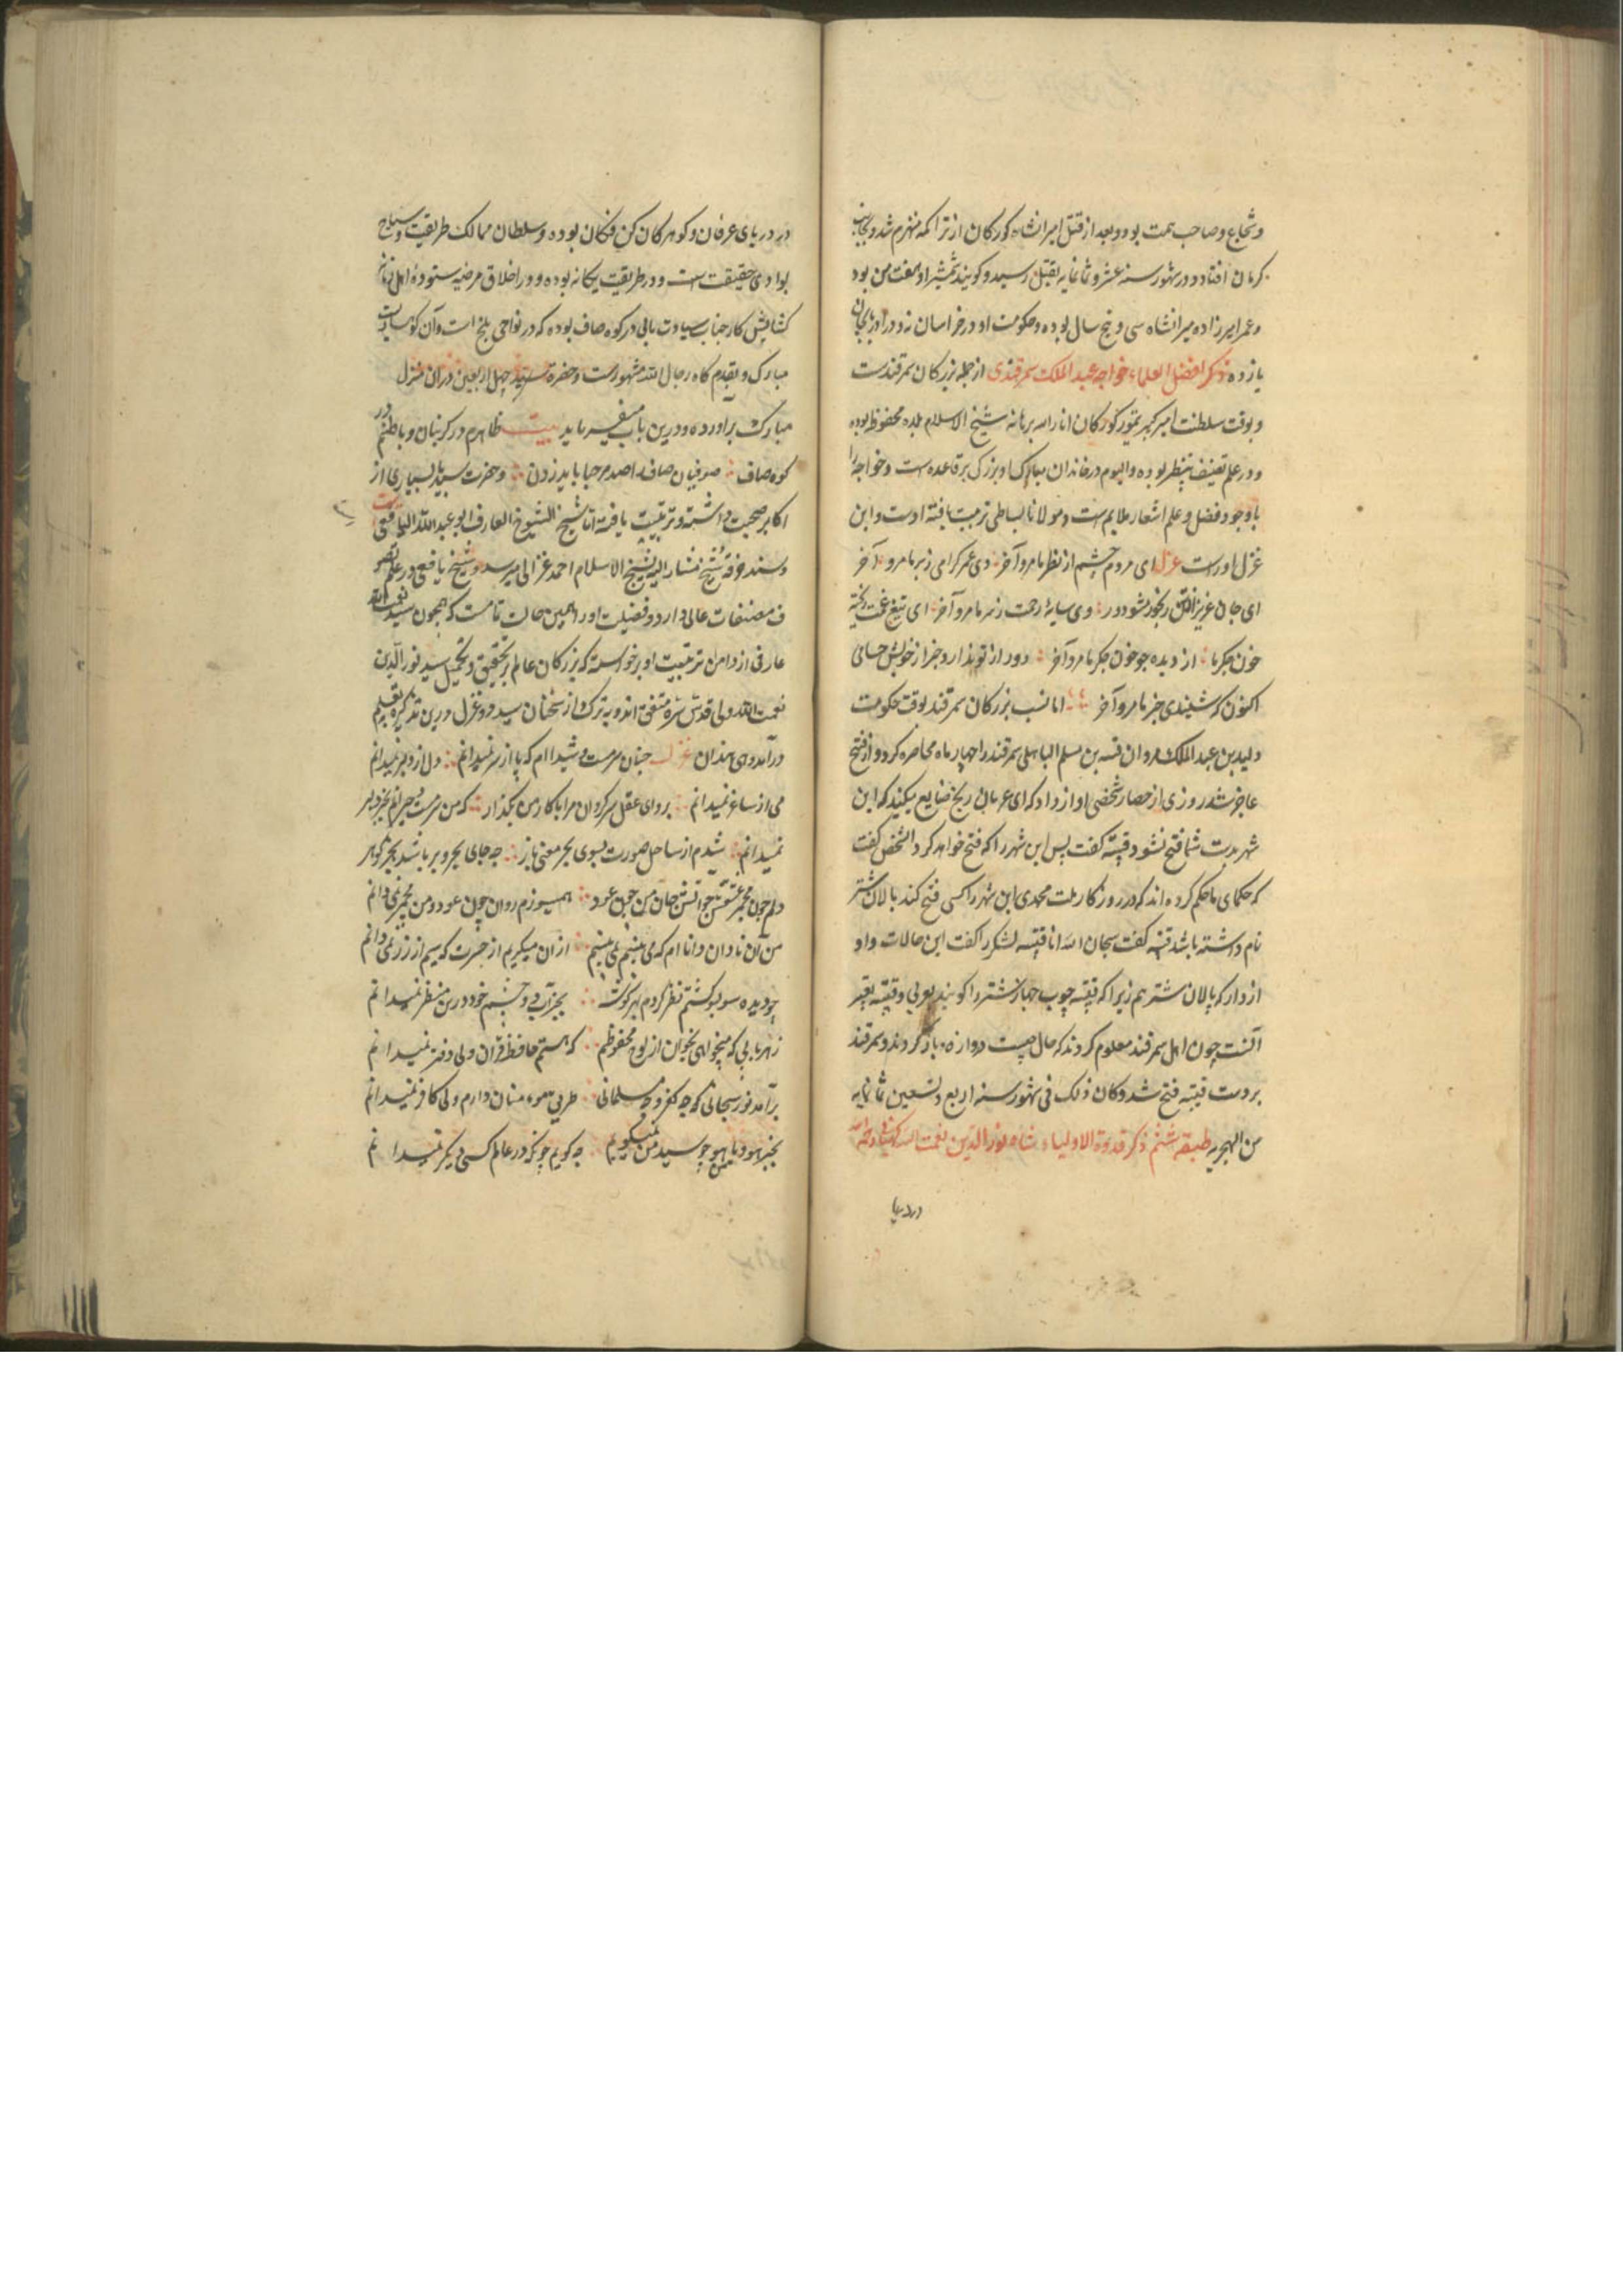 وشجاع وصاحب همت بود وبعد از قتل امیرانشاه کورکان از تراکمه منهزم شد وبجانب
کرمان افتاد ودر شهور سنه عشر وثمانمایه بقتل رسید وکویند شمشیر او هفت من بود
وعمر امیرزاده میرانشاه سی و پنج سال بوده وحکومت او در خراسان نه ودر اذربایجان
یازده ذکر افضل العلماء خواجه عبدالملک سمرقندی از جمله بزرکان سمرقندست
وبوقت سلطنت امیر کبیر تیمور کورکان انار الله برهانه شیخ الاسلام بلده محفوظه بوده
ودر علم تصنیف بینظیر بوده والیوم در خاندان مبارک او بزرکی برقاعده است وخواجه را
باوجود فضل وعلم اشعار ملایم است ومولانا بساطی تربیت یافته اوست واین
غزل اوراست غزل ای مردم چشم از نظر ما مرو آخر وی عمر کرامی زبر ما مرو آخر
ای جان عزیز از تن رنجور مشو دور وی سایۀ رحمت زسر ما مرو آخر ای تیغ غمت ریخته
خون جکر ما از دیده چو خون جکر ما مرو آخر دور از تو ندارد خبر از خویش
اکنون که شنیدی خبر ما مرو آخر اما نسب بزرکان سمرقند بوقت حکومت
ولید بن عبدالملک مروان قتیبه بن مسلم الباهلی سمرقند را چهار ماه محاصره کرد واز فتح
عاجز شد روزی از حصار شخصی اواز داد که ای عربان رنج ضایع میکنید که این
شهر بدست شما فتح نشود قتیبه کفت پس این شهر را که فتح خواهد کرد آنشخص کفت
که حکمای ما حکم کرده اند که در روزکار ملت محمدی این شهر را کسی فتح کند پالان شتر
نام داشته باشد قتیبه کفت سبحان الله انا قتیبه لشکر را کفت این حالات واو
از دار که پالان شتر هم زیرا که قتیبه چوب جهاز شتر را کویند بعربی وقتیبه
آنست چون اهل سمرقند معلوم کردند که حال چیست دروازه باز کردند وسمرقند
بر دست قتیبه فتح شد وکان ذلک فی شهور سنه اربع وتسعین ثمانمایه
من الهجریه طبقه ششم ذکر قدوة الاولیاء شاه نورالدین نعمت الله
دردریا
در دریای عرفان وکوهر کان کن فکان بوده وسلطان ممالک طریقت وسیاح
بوادی حقیقت است ودر طریقت یکانه بوده ودر اخلاق مرضیه ستودۀ اهل زمانه
کشایش کار جناب سیادت مابی در کوه صاف بوده که در نواحی بلخ است وآن کوهساریست
مبارک وبقدم کاه رجال الله مشهورست وحضرة سید چهل اربعین دران منزل
مبارک برآورده ودرین باب میفرماید بیت ظاهرم در کربنان وباطنم در
کوه صاف صوفیان صاف را صد مرحبا باید زدن وحضرت سید بسیاری از
اکابر صحبت داشته وتربیت یافته اما شیخ الشیوخ العارف ابو عبدالله الیافعی است
وسند خرقه شیخ مشار الیه بشیخ الاسلام احمد غزالی میرسد وشیخ یافعی در علم تصو
ف مصنفات عالی دارد وفضیلت او را همین حالت تمامست که همچون سید نعمت الله
عارفی از دامن تربیت او برخواسته که بزرکان عالم بر تحقیق وتکمیل سید نورالدین
نعمت الله ولی قدس سره متفق اند وبه تبرک از سخنان سید دو غزل درین تذکیره بقلم
درآمد وی هذان غزل چنان سرمست وشیدا ام که پا از سر نمیدانم دل از دلبر نمیدانم
می از ساغر نمیدانم برو ای عقل سرکردان مرا با کار من بکذار که من سرمست وحیرانم بجز دلبر
نمیدانم شدم از ساحل صورت بسوی بحر معنی باز چه جای بحر وبر باشد بجز کوهر
دلم چون مجمر عشقش چو آتش جان من چون عود همیسوزم روان چون عود ومن مجمر نمیدانم
من آن نادان دانا ام که می بینم نمی بینم از آن میکریم از حسرت که سیم از زر نمیدانم
چو دیده سو بسو کشتم نظر کردم بهر کوشه بجز آبی ودر چشم خود درین منظر نمیدانم
زهر بابی که میخواهی بخوان از لوح محفوظم که هستم حافظ قرآن ولی دفتر نمیدانم
برآمد نور سبحانی چه کفر وچه مسلمانی طریق مومنان دارم ولی کافر نمیدانم
بجز یاهو ویا من هو چو سید من نمیکویم چه کویم چونکه در عالم کسی دیکر نمیدانم